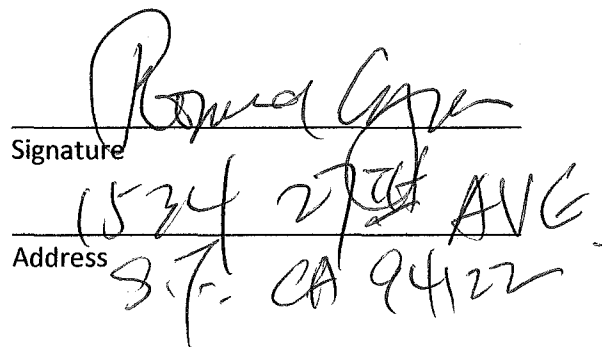 Signature
1534 27th AVE
Address
S.F. CA 94122